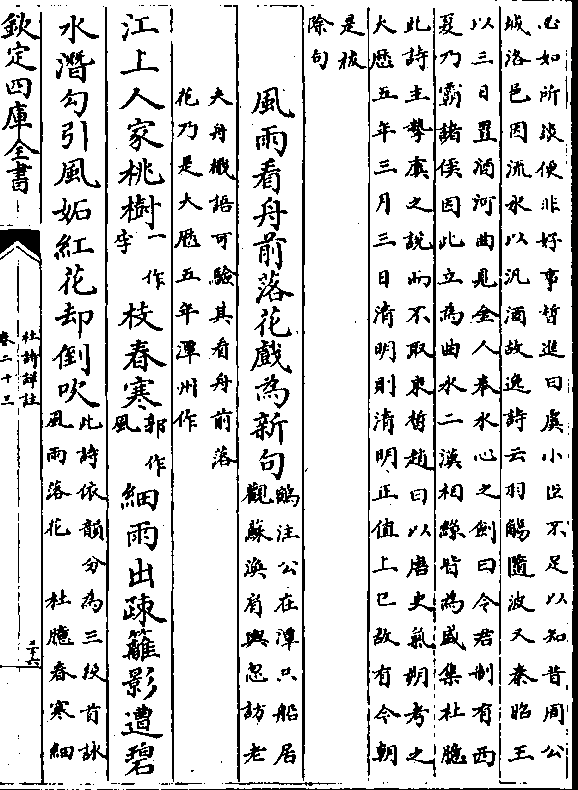 心如所談便非好事皙進曰虞小臣不足以知昔周公
城洛邑因流水以汎酒故逸詩云羽觴隨波又秦昭王
以三日置酒河曲見金人奉水心之劍曰令君制有西
夏乃霸諸侯因此立為曲水二漢相緣皆為盛集杜臆
此詩主摯虞之説而不取束皙趙曰以唐史氣朔考之
大歴五年三月三日清明則清明正值上巳故有今朝
是被
除句
風雨看舟前落花戲為新句
鶴注公在潭只船居
觀蘇渙肩輿忽訪老
夫舟檝語可驗其看舟前落
花乃是大歴五年潭州作
江上人家桃樹
一作
李
枝春寒
郭作
風
細雨出疎籬影遭碧
水潛勾引風妬紅花却倒吹
此詩依韻分為三段首詠
風雨落花 杜臆春寒細
欽定四庫全書
杜詩詳註
卷二十三
二十六